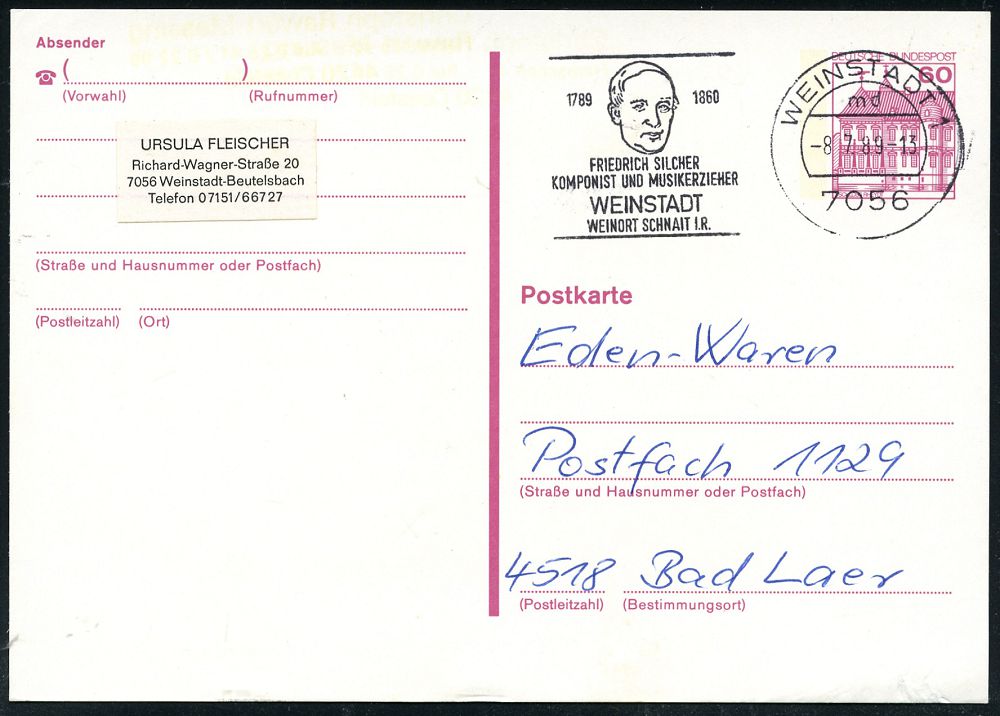 Absender
☎ ( )
(Vorwahl) (Rufnummer)
URSULA FLEISCHER
Richard-Wagner-Straße 20
7056 Weinstadt-Beutelsbach
Telefon 07151/66727
(Straße und Hausnummer oder Postfach)
(Postleitzahl) (Ort)
1789 1860
FRIEDRICH SILCHER
KOMPONIST UND MUSIKERZIEHER
WEINSTADT
WEINORT SCHNAIT I.R.
DEUTSCHE BUNDESPOST
60
WEINSTADT 1
md
-8.7.89-13
7056
Postkarte
Eden-Waren
Postfach 1129
(Straße und Hausnummer oder Postfach)
4518 Bad Laer
(Postleitzahl) (Bestimmungsort)